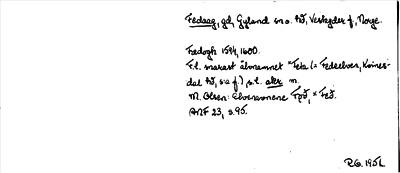 Fedaag, gd, Gyland sn o. hd, Vestagder f, Norge.
Fedogh 1594, 1600.
F.l. snarast älvnamnet *Feta (= Fedaelven, Kvines-
dal hd, s a f.), s.l. aker m.
M. Olsen: Elvenavnene
ANF 23, s. 95.
R.G. 1951.